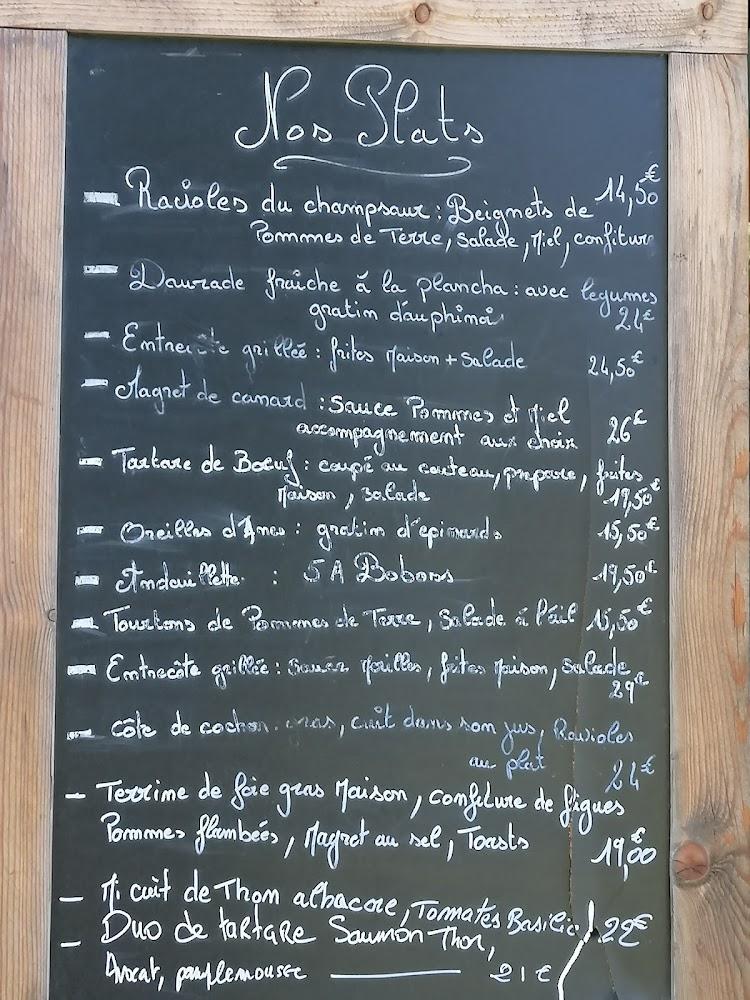 Nos Plats
- Ravioles du champsaur : Beignets de 14,50€
Pommes de Terre, Salade, Miel, confiture
- Daurade fraîche à la plancha : avec legumes
gratin dauphinois 24€
- Entrecôte grillée : frites Maison + Salade 24,50€
- Magret de canard : Sauce Pommes et Miel
accompagnement aux choix 26€
- Tartare de Boeuf : coupé au couteau, prepare, frites
Maison, Salade 19,50€
- Oreilles d'Anes : gratin d'epinards 15,50€
- Andouillette : 5A Bobors 19,50€
- Tourtons de Pommes de Terre, Salade à l'ail 15,50€
- Entrecôte grillée : Sauce Morilles, frites Maison, Salade
29€
- Côte de cochon gras, cuit dans son jus, Ravioles
au plat 24€
- Terrine de foie gras Maison, confiture de figues
Pommes flambées, Magret au sel, Toasts 19,00€
- Mi cuit de Thon albacore, Tomates Basilic 22€
- Duo de tartare Saumon Thon,
Avocat, pamplemousse 21€